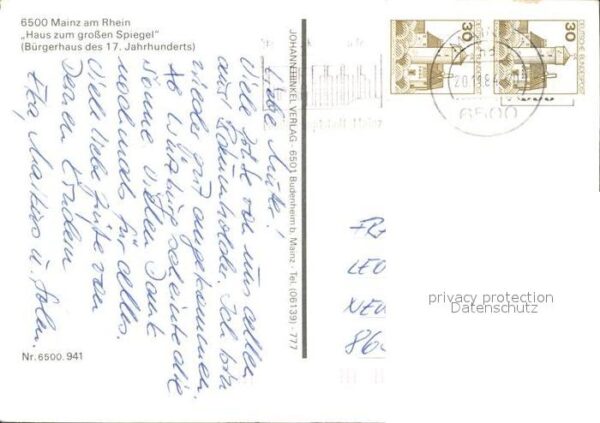 6500 Mainz am Rhein
„Haus zum großen Spiegel"
(Bürgerhaus des 17. Jahrhunderts)
Liebe Mutti!
Viele Grüße von uns allen
aus Baumholder. Ich bin
wieder gut angekommen.
Ab Würzburg scheinte die
Sonne. Vielen Dank
nochmals für alles.
Viele liebe Grüße von
Deinen Kindern
u.
Nr. 6500. 941
JOHANN HINKEL VERLAG · 6501 Budenheim b. Mainz · Tel. (06139) · 777
30
DEUTSCHE BUNDESPOST
30
DEUTSCHE BUNDESPOST
6500
FR
LEO
NEU
86
privacy protection
Datenschutz